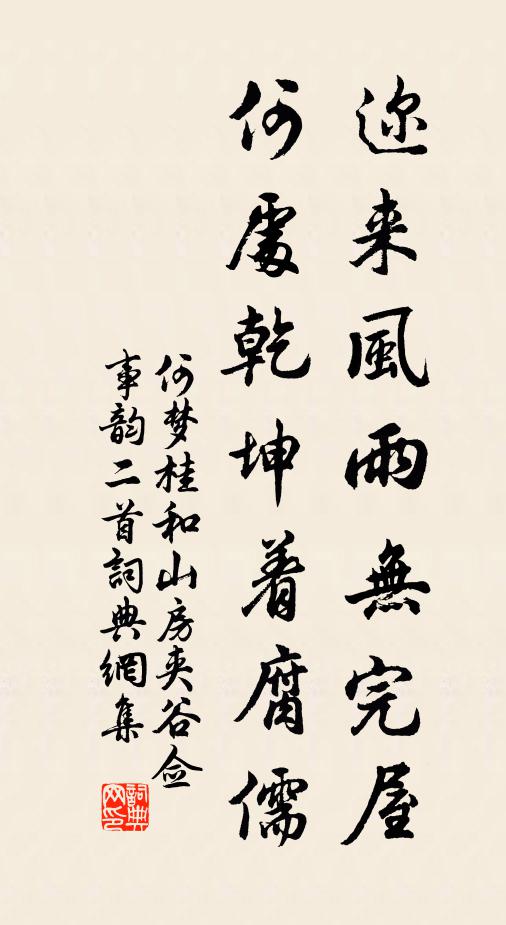 迩来風雨無完屋
何處乾坤着腐儒
何梦桂和山房夹谷佥
事韵二首詞典網集
詞典网印